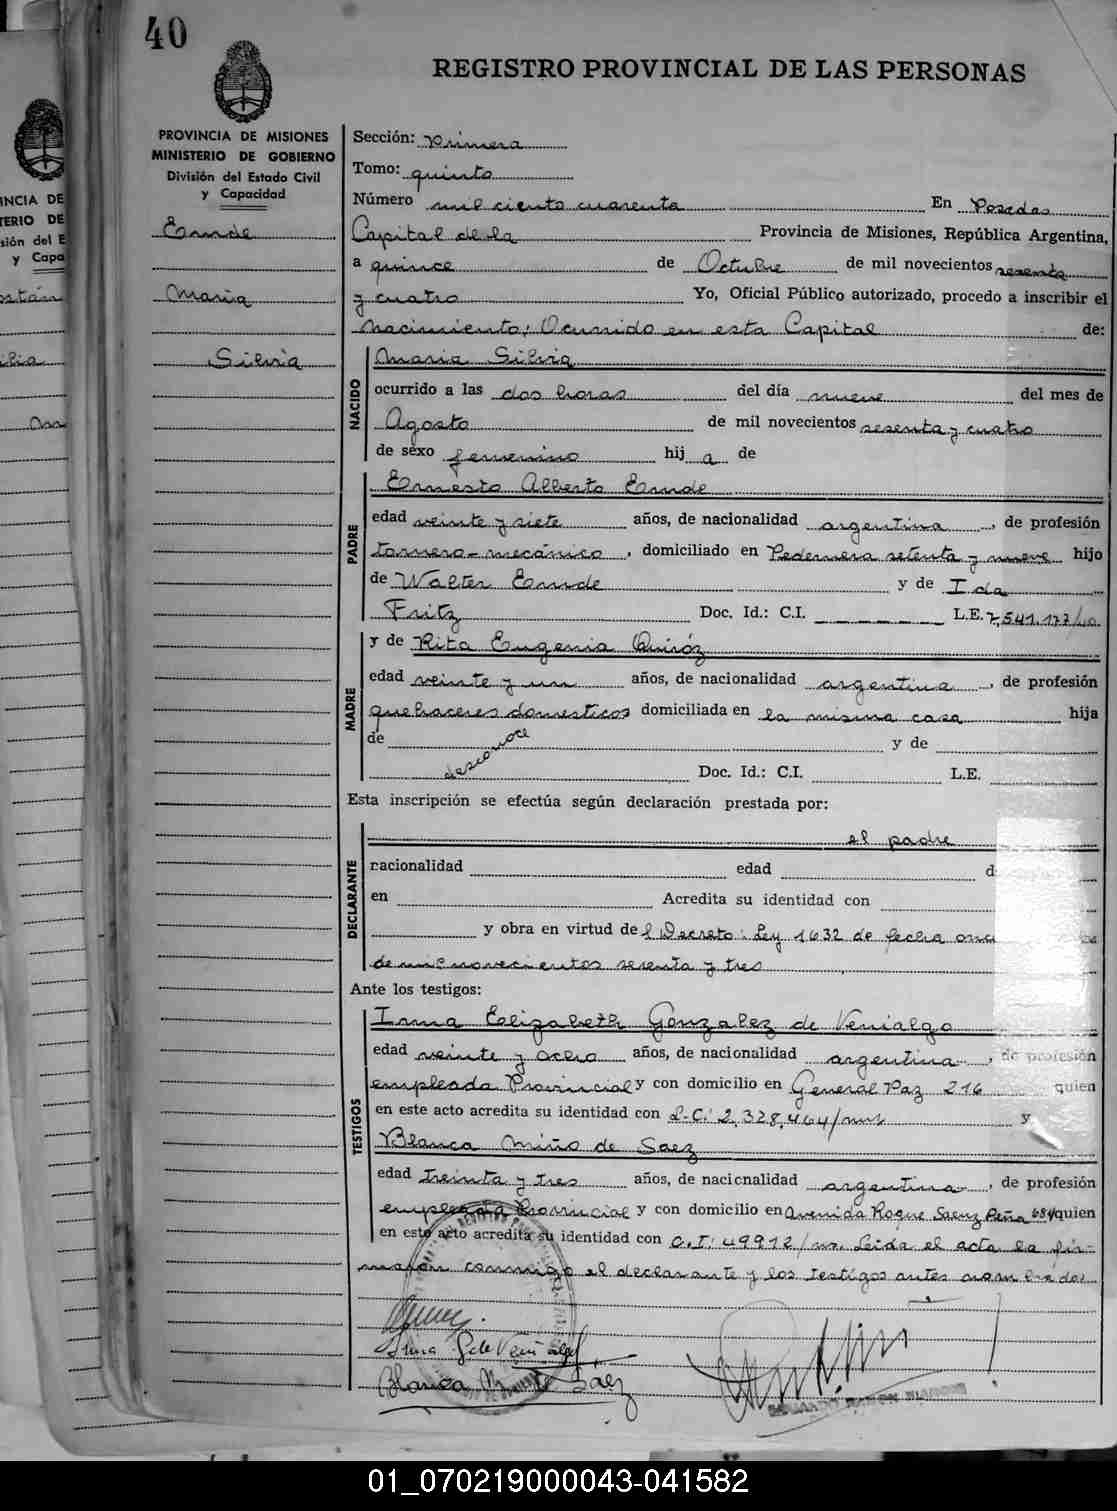 40
REGISTRO PROVINCIAL DE LAS PERSONAS
PROVINCIA DE MISIONES
MINISTERIO DE GOBIERNO
División del Estado Civil
y Capacidad
Emde
Maria
Silvia
Sección: Primera
Tomo: quinto
Número mil ciento cuarenta En Posadas
Capital de la Provincia de Misiones, República Argentina,
a quince de Octubre de mil novecientos sesenta
y cuatro Yo, Oficial Público autorizado, procedo a inscribir el
Nacimiento: Ocurrido en esta Capital de:
NACIDO
Maria Silvia
ocurrido a las dos horas del día nueve del mes de
Agosto de mil novecientos sesenta y cuatro
de sexo femenino hij a de
PADRE
Ernesto Alberto Emde
edad veinte y siete años, de nacionalidad argentina, de profesión
tornero-mecánico, domiciliado en Pedernera setenta y nueve hijo
de Walter Emde y de Ida
Fritz Doc. Id.: C.I. L.E. 7.541.177/
MADRE
y de Rita Eugenia Quiróz
edad veinte y un años, de nacionalidad argentina, de profesión
quehaceres domesticos domiciliada en la misma casa hija
de desconoce y de
Doc. Id.: C.I. L.E.
Esta inscripción se efectúa según declaración prestada por:
DECLARANTE
el padre
racionalidad edad d
en Acredita su identidad con
y obra en virtud del Decreto: Ley 1632 de fecha
de mil novecientos sesenta y tres
Ante los testigos:
TESTIGOS
Irma Elizabeth Gónzalez de Venialgo
edad veinte y ocho años, de nacionalidad argentina, de profesión
empleada Provincial y con domicilio en General Paz 216 quien
en este acto acredita su identidad con L.C: 2.328.464/ y
Blanca Miño de Saez
edad treinta y tres años, de nacionalidad argentina, de profesión
empleada Provincial y con domicilio en Avenida Roque Saenz Peña 684 quien
en este acto acredita su identidad con C.I: 49912/ Leida el acta la fir-
maron conmigo el declarante y los testigos antes nombrados
Irma G de Venialgo
Blanca M de Saez
01_070219000043-041582